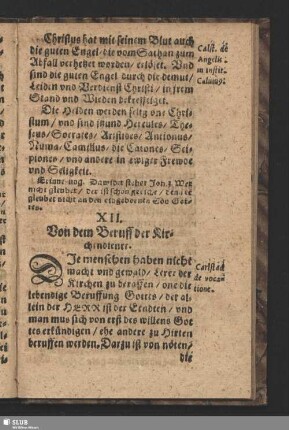 Christus hat mit seinem Blut auch
die guten Engel / die vom Sathan zum
Abfall verhetzet worden / erlöset. Und
sind die guten Engel durch die demut /
Leiden und Verdienst Christi / in jrem
Stand und Wirden bekrefftiget.
Calst. de
Angelic.
in instit.
Calumg.
Die Helden werden selig one Chri-
stum / und sind jtzund Hercules / The-
seus / Socrates / Aristides / Antonius /
Numa / Camillus / die Catones / Sci-
piones / und andere in ewiger Frewde
und Seligkeit.
nicht gleubet / der ist schon gericht /
gleubet nicht an den eingebornen Son Got-
tes.
XII.
Von dem Beruff der Kir-
chendiener.
DJe menschen haben nicht
macht und gewald / Lerer der
Kirchen zu beruffen / one die
lebendige Beruffung Gottes / der al-
lein der HERR ist der Erndten / und
man mus sich von erst des willens Got
tes erkündigen / ehe andere zu Hirten
beruffen werden. Darzu ist von nöten /
die
Carlstad
de vocati
tione.
SLUB